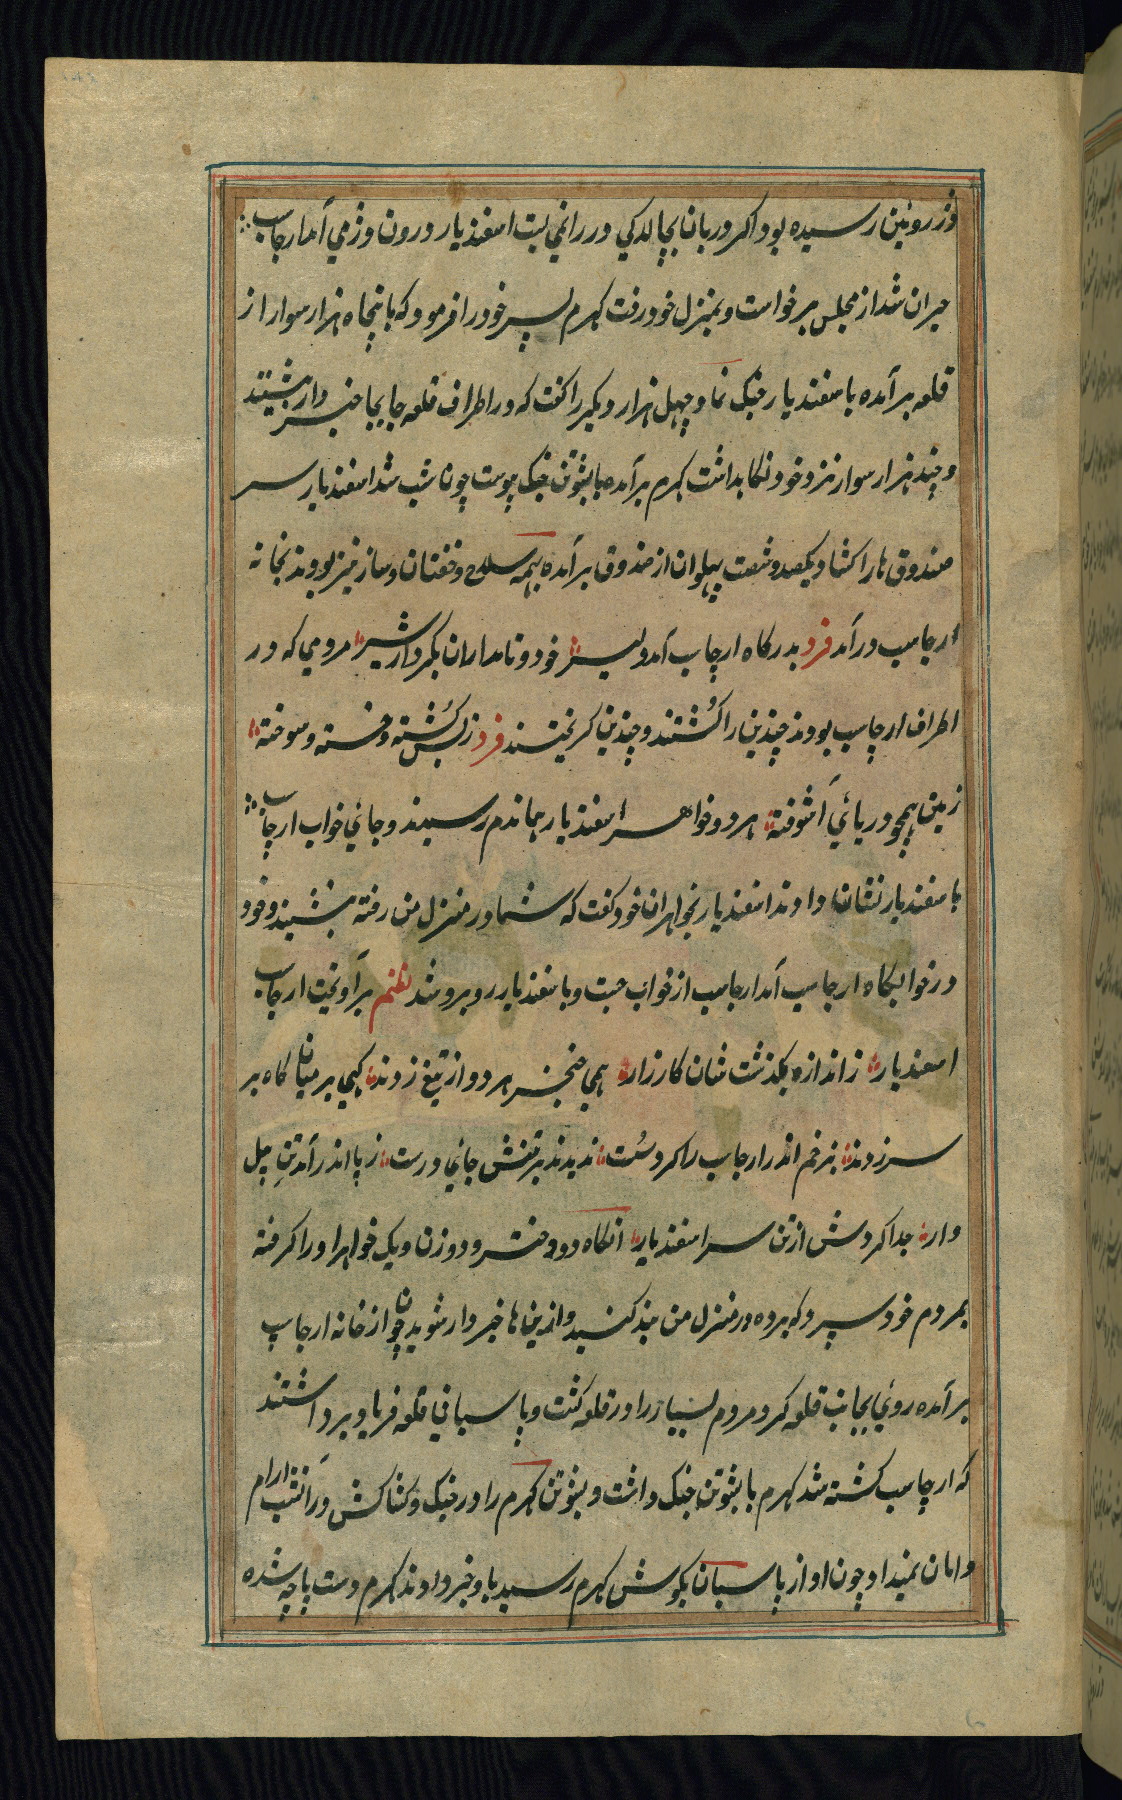 دز روئین رسیده بود اکر دربان بچالاکی در را نمی بست اسفندیار درون دز می آمد ارجاسپ
حیران شد از مجلس برخواست و بمنزل خود رفت کهرم پسر خود را فرمود که با پنجاه هزار سوار از
قلعه برآمده با اسفندیار جنک نما و چهل هزار دیکر را کفت که در اطراف قلعه جابجا خبردار باشیتد
و چند هزار سوار نزد خود نکاهداشت کهرم برآمده با بشوتن جنک پیوست چون شب شد اسفندیار سر
صندوق ها را کشاد و یکصد و شصت پهلوان از صندوق برآمده همه سلاح و خفتان و ساز نیز بودند بخانه
ارجاسپ درآمد فرد بدرکاه ارجاسپ آمد دلیر خود و نامداران بکردار شیر مردمی که در
اطراف ارجاسپ بودند چندین را کُشتند و چندین کریختند فرد زبس کُشته و خسته و سوخته
زمین همچو دریائی آشوفته هر دو خواهر اسفندیار هماندم رسیدند و جائی خواب ارجاسپ
با سفندیار نشان دادند اسفندیار بخواهران خود کفت که شما در منزل من رفته بنشیند و خود
در خوابکاه ارجاسپ آمد ارجاسپ از خواب جست و با سفندیار روبرو شد نظم برآویخت ارجاسپ
اسفندیار ز اندازه بکذشت شان کارزار همی خنجر هر دو از تیغ زدند کهی بر میان کاه بر
سر زدند بزخم اندر ارجاسپ را کرد سُست ندیدند بر تنش جائی درست ز پا اندر آمد تنِ پیل
وار جدا کردش از تن سر اسفندیار انکاه دو دختر و دو زن و یک خواهر او را کرفته
بمردم خود سپرد که برده در منزل من بند کنید و ازین ها خبردار شوید چون از خانه ارجاسپ
برآمده روئی بجانب قلعه کرد مردم بسیار را در قلعه کشت و پاسبانی قلعه فریاد برداشتند
که ارجاسپ کشته شد کهرم با بشوتن جنک داشت و بشوتن کهرم را در جنک و کشاکش در آنشب ارام
و امان نمیداد چون اواز پاسبان بکوش کهرم رسید باو خبر دادند کهرم دست پاچه شده